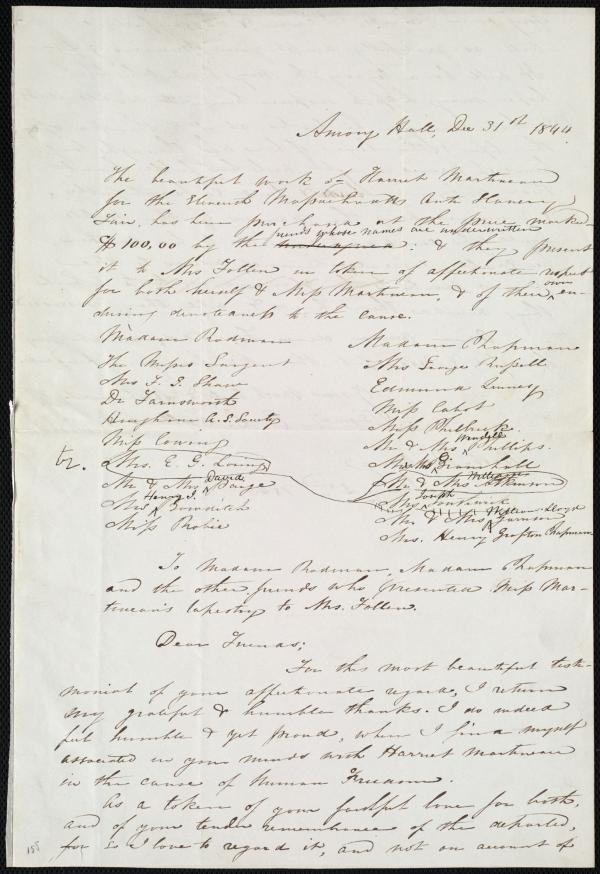 Amory Hall, Dec 31st 1844.
The beautiful work of Harriet Martineau
for the Eleventh Massachusetts Anti Slavery
Fair, has been purchased at the price marked
$100,00 by the friends whose names are underwritten : & they present
it to Mrs Follen in token of affectionate respect
for both herself & Miss Martineau, & of their own en-
during devotedness to the cause.
Madam Rodman
The Misses Sargent
Mrs F. G. Shaw
Dr Farnsworth
Hingham A. S. Society
Miss Coming
tr. Mrs. E. G. Loring
Mr & Mrs David Paige
Mrs Henry I. Bowditch
Miss Robie
Madam Chapman
Mrs George Russell
Edmund Quincy
Miss Cabot
Miss Philbrick
Mr & Mrs Wendell Phillips.
Mrs
Mr & Mrs William Atkinson
Mrs Joseph Southwick
Mr & Mrs William Lloyd Garrison
Mrs. Henry Grafton Chapman.
To Madam Rodman, Madam Chapman
and the other friends who presented Miss Mar-
tineau's tapestry to Mrs. Follen.
Dear Friends;
For this most beautiful testi-
monial of your affectionate regard, I return
my grateful & humble thanks. I do indeed
feel humble & yet proud, when I find myself
associated in your minds with Harriet Martineau
in the cause of Human Freedom.
As a token of your faithful love for both,
and of your tender remembrance of the departed,
for so I love to regard it, and not on account of